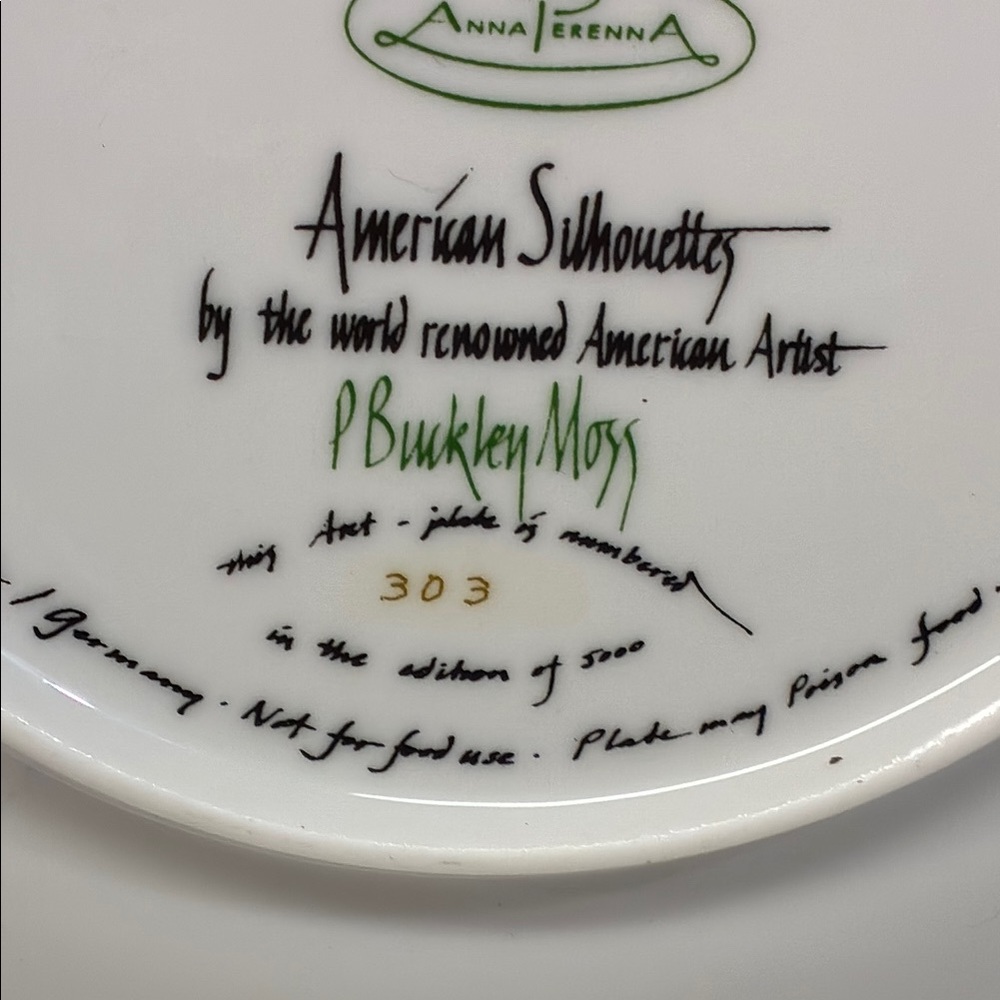 ANNA PERENNA
American Silhouettes
by the world renowned American Artist
P Buckley Moss
this Art - plate is numbered
303
in the edition of 5000
/ Germany · Not for food use · Plate may Poison food ·